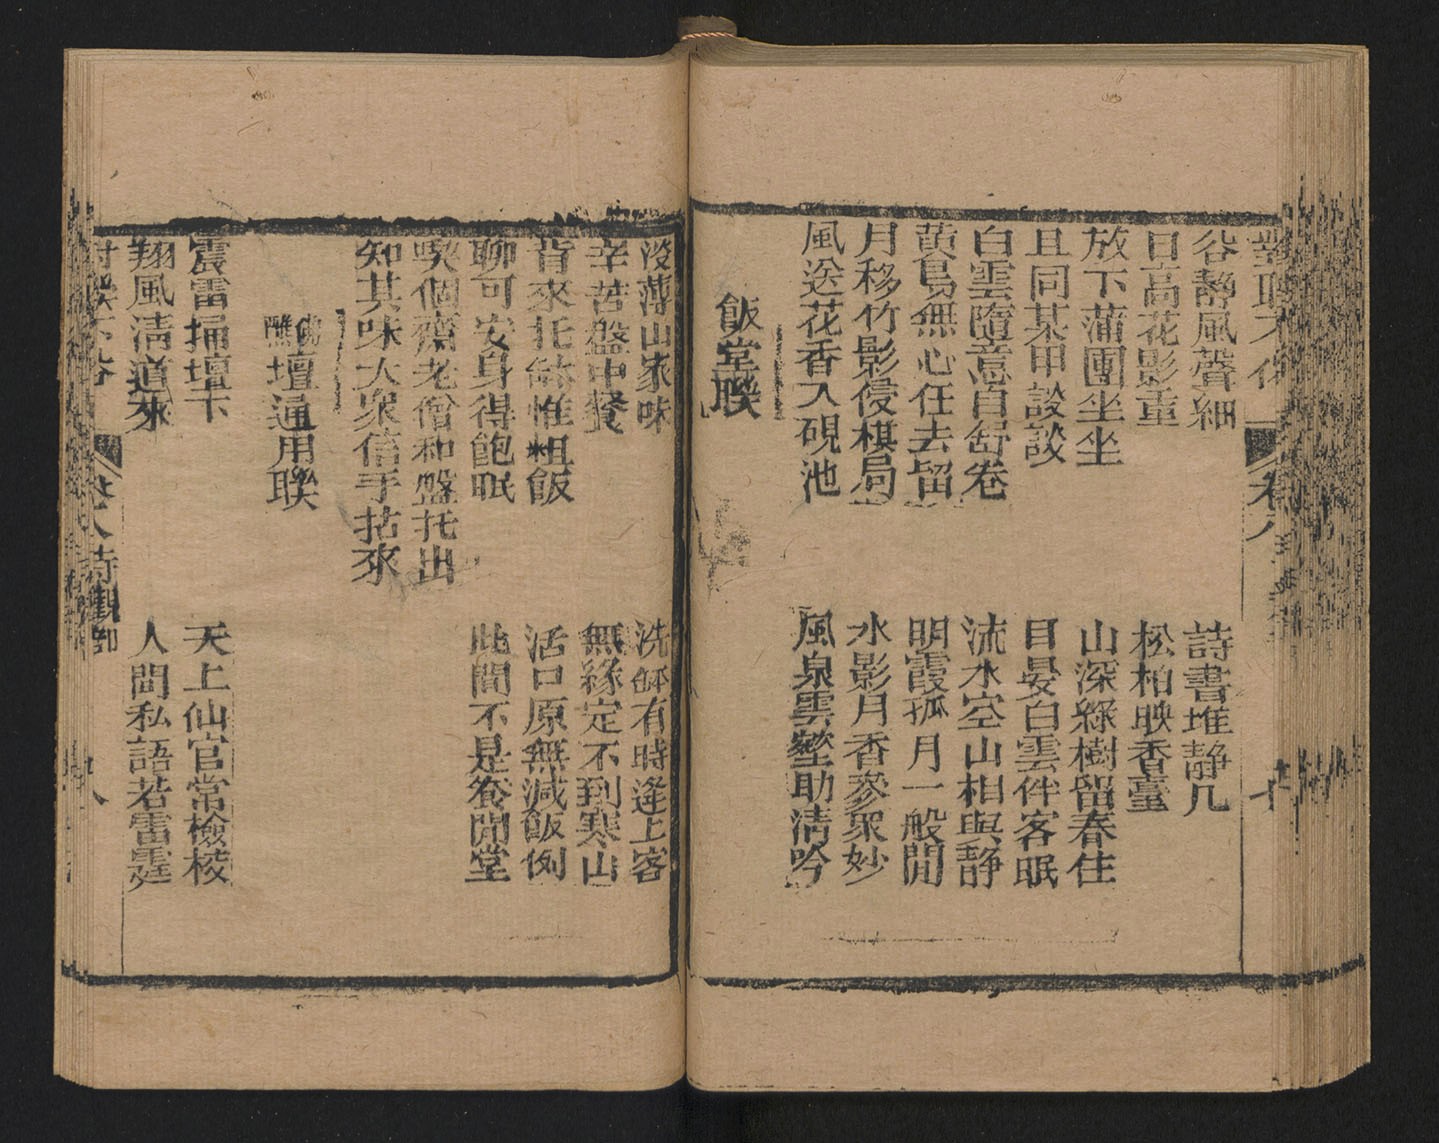 對聯不俗 卷八
谷靜風聲細 詩書堆靜几
日高花影重 松柏映香臺
放下蒲團坐坐 山深綠樹留春住
且同某甲談談 目晏白雲伴客眠
白雲隨意自舒卷 流水空山相與靜
黃鳥無心任去留 明霞孤月一般閒
月移竹影侵棋局 水影月香參衆妙
風送花香入硯池 風泉雲壑助清吟
飯堂聯
沒薄山家味 洗鉢有時逢上客
辛苦盤中餐 無緣定不到寒山
背來托鉢惟粗飯 活口原無減飯例
聊可安身得飽眠 此間不是養閒堂
喫個齋老僧和盤托出
知其味大衆信手拈來
醮壇通用聯
震雷掃壇下 天上仙官常檢校
翔風清道來 人間私語若雷霆
對聯不俗 卷八寺觀部